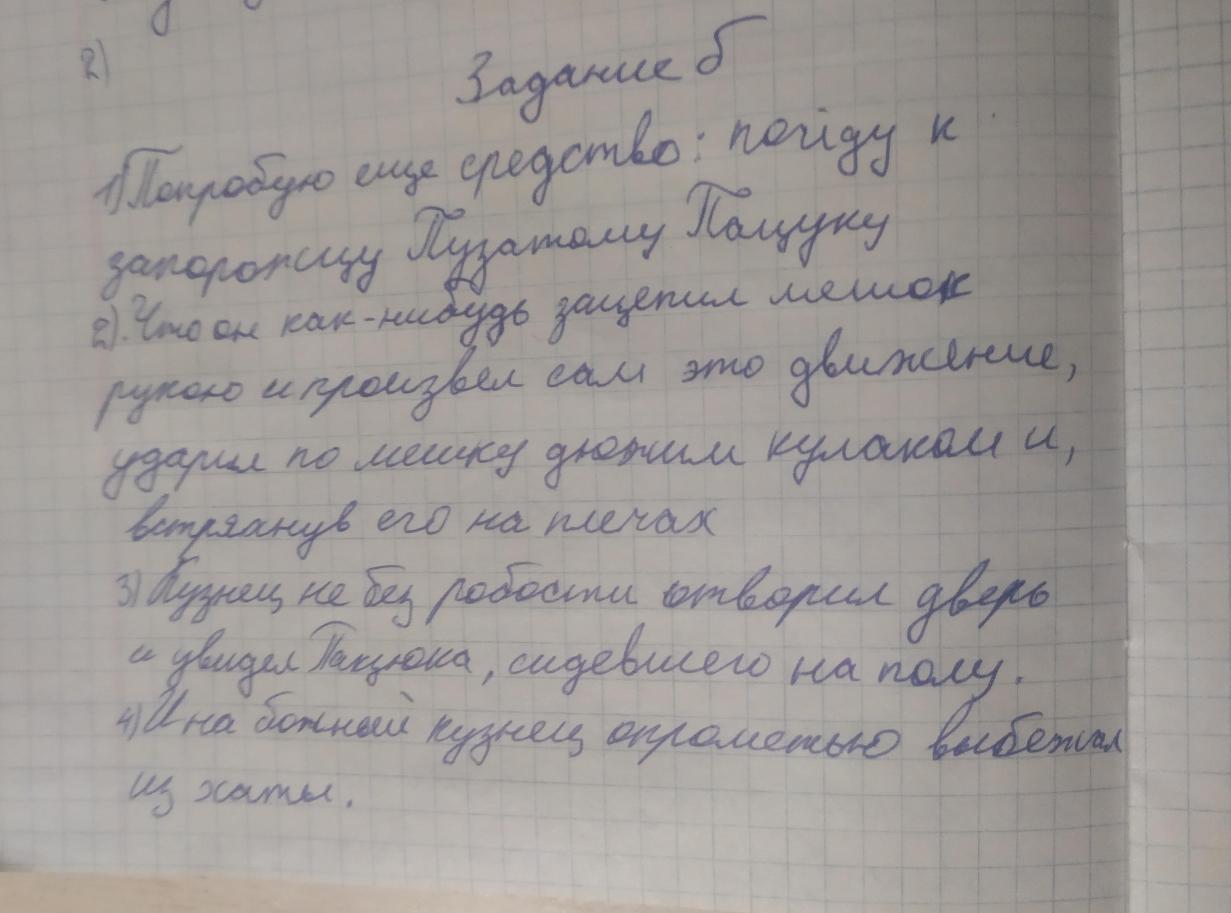 2)
Задание б
1) Попробую еще средство: пойду к
запорожцу Пузатому Пацуку
2). Что он как-нибудь зацепил мешок
рукою и произвел сам это движение,
ударил по мешку дюжим кулаком и,
встряхнув его на плечах
3) Кузнец не без робости отворил дверь
и увидел Пацюка, сидевшего на полу.
4) И набожный кузнец опрометью выбежал
из хаты.